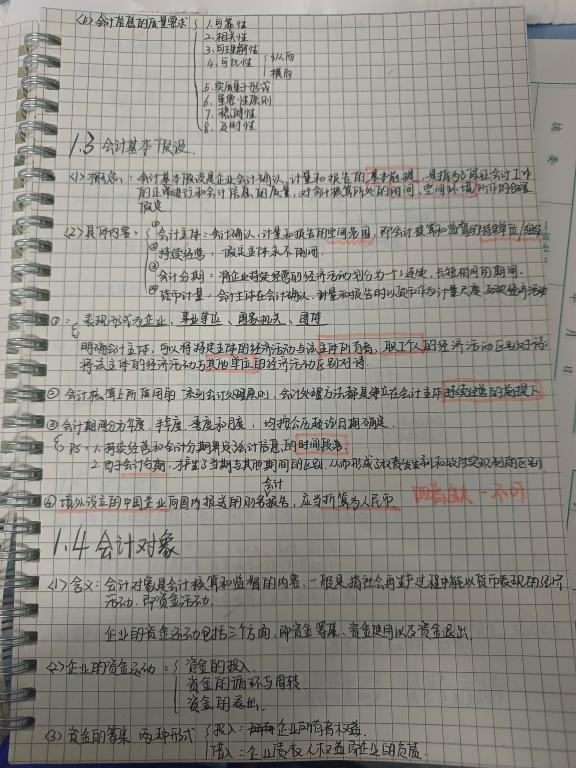 <6>会计信息的质量要求 1.可靠性
2.相关性
3.可理解性
4.可比性 纵向
横向
5.实质重于形式
6.重要性原则
7.谨慎性
8.及时性
1.3 会计基本假设
<1>概念:会计基本假设是企业会计确认、计量和报告的基本前提,是指为了保证会计工作
的正常进行和会计信息的质量,对会计核算所处的时间、空间环境所作的合理
假定
<2>具体内容: ①会计主体:会计确认、计量和报告的空间范围,即会计核算和监督的特定单位/组织
②持续经营:假定主体永不倒闭.
③会计分期:将企业持续经营的经济活动划分为一个个连续、长短相同的期间.
④货币计量:会计主体在会计确认、计量和报告时以货币作为计量尺度,反映经济活动
①:表现形式为企业、事业单位、国家机关、团体
明确会计主体,可以将特定主体的经济活动与该主体所有者、职工个人的经济活动区别对待
将该主体的经济活动与其他单位的经济活动区别对待.
②会计核算上所使用的一系列会计处理原则,会计处理方法都是建立在会计主体持续经营的前提下
③会计期间分为年度、半年度、季度和月度,均按公历起讫日期确定.
PS:1.持续经营和会计分期界定会计信息的时间段落
2.由于会计分期,才产生了当期与其他期间的区别,从而形成了权责发生制和收付实现制的区别
会计
④境外设立的中国企业向国内报送的财务报告,应当折算为人民币 四者缺一不可
1.4 会计对象
<1>含义:会计对象是会计核算和监督的内容,一般是指社会再生产过程中能以货币表现的经济
活动,即资金活动.
企业的资金运动包括三个方面,即资金筹集、资金使用以及资金退出.
<2>企业的资金运动: 资金的投入.
资金的循环与周转
资金的退出.
<3>资金的筹集 两种形式 投入:企业所有者权益.
借入:企业债权人权益即企业的负债.
摘要
月
日